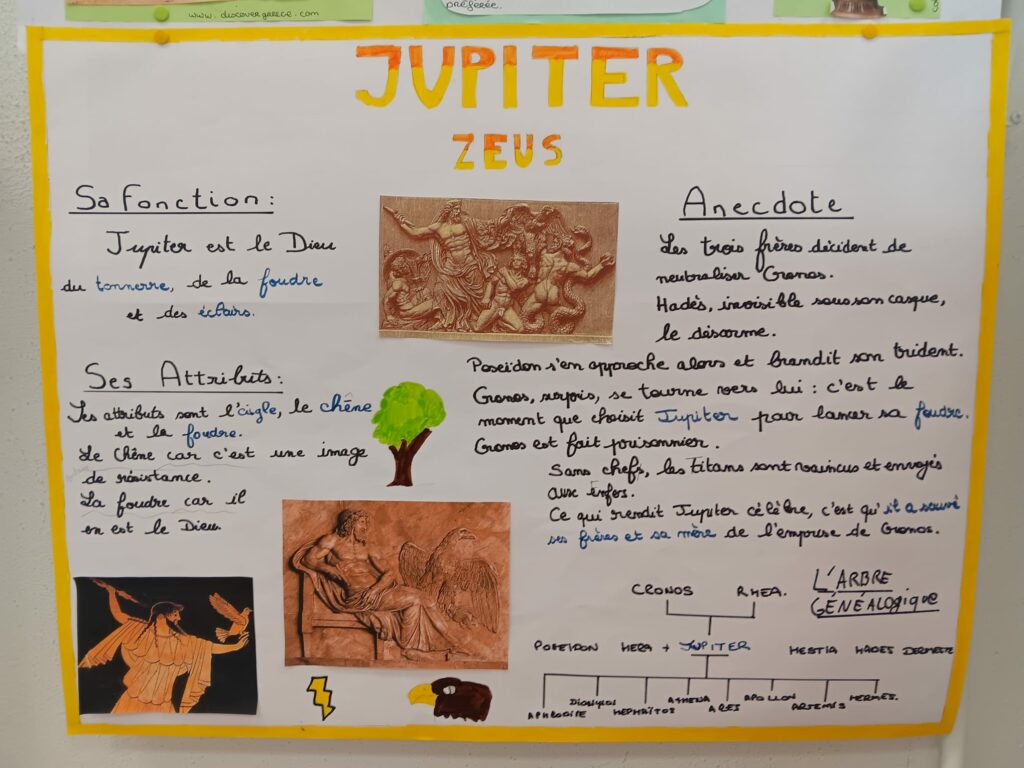 www.discovergreece.com
préférée.
JUPITER
ZEUS
Sa Fonction :
Jupiter est le Dieu
du tonnerre, de la foudre
et des éclairs.
Ses Attributs :
Ses attributs sont l'aigle, le chêne
et la foudre.
Le Chêne car c'est une image
de résistance.
La foudre car il
en est le Dieu.
Anecdote
Les trois frères décident de
neutraliser Cronos.
Hadès, invisible sous son casque,
le désarme.
Poseïdon s'en approche alors et brandit son trident.
Cronos, surpris, se tourne vers lui : c'est le
moment que choisit Jupiter pour lancer sa foudre.
Cronos est fait prisonnier.
Sans chefs, les titans sont vaincus et envoyés
aux enfers.
Ce qui rendit Jupiter célèbre, c'est qu'il a sauvé
ses frères et sa mère de l'emprise de Cronos.
L'ARBRE
GÉNÉALOGIQUE
CRONOS RHEA.
POSEIDON HERA + JUPITER HESTIA HADES DEMETER
APHRODITE DIONYSOS HEPHAÏTOS ATHENA ARES APOLLON ARTEMIS HERMES.